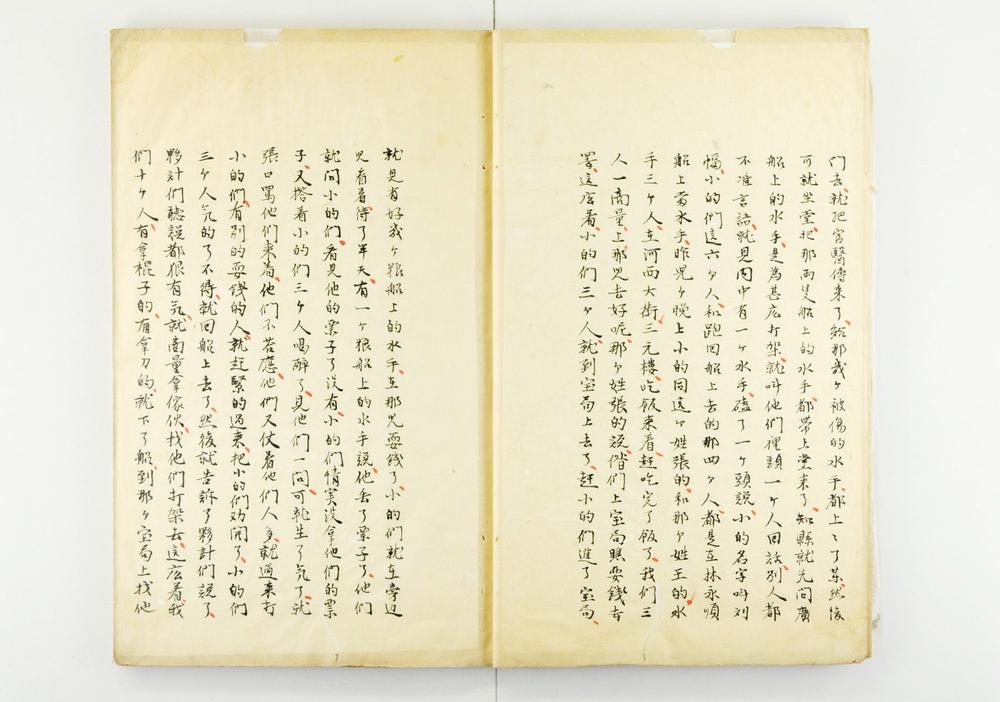 门去、就把官醫傳来了、給那㦲ヶ被傷的水手、都上〻了药、然後
可就坐堂、把那兩隻船上的水手、都帶上堂来了、知縣就先问廣
船上的水手、是為甚庅打架、就叫他們裡頭一ヶ人回話、別人都
不准言語、就見内中有一ヶ水手、磕了一ヶ頭説、小的名字呌刘
幅、小的們這六ヶ人、和跑回船上去的那四ヶ人、都是在林永順
船上當水手、昨児ヶ晚上小的同這ヶ姓張的、和那ヶ姓王的水
手三ヶ人、在河西大街三元樓、吃飯来着、赶吃完了飯了、我們三
人一商量、上那児去好呢、那ヶ姓張的説、偺們上宝局瞧耍錢去
罢、這庅着、小的们三ヶ人、就到宝局上去了、赶小的們進了宝局、
就見有好㦲ヶ粮船上的水手、在那児耍錢了、小的們就在旁边
児看着、待了半天、有一ヶ粮船上的水手説、他丢了票子了、他们
就问小的们、看見他的票子了没有、小的们情实没拿他們的票
子、又搭着小的们三ヶ人喝醉了、見他们一问、可就生了气了、就
張口罵他们来着、他们不荅應、他们又仗着他们人多、就過来打
小的们、有别的耍錢的人、就赶緊的过来、把小的们劝開了、小的们
三ヶ人气的了不得、就回船上去了、然後就告訴了夥計们説了、
夥計们聽説都狠有气、就商量拿傢伙、找他们打架去、這庅着、我
们十ヶ人、有拿棍子的、有拿刀的、就下了船、到那ヶ宝局上找他